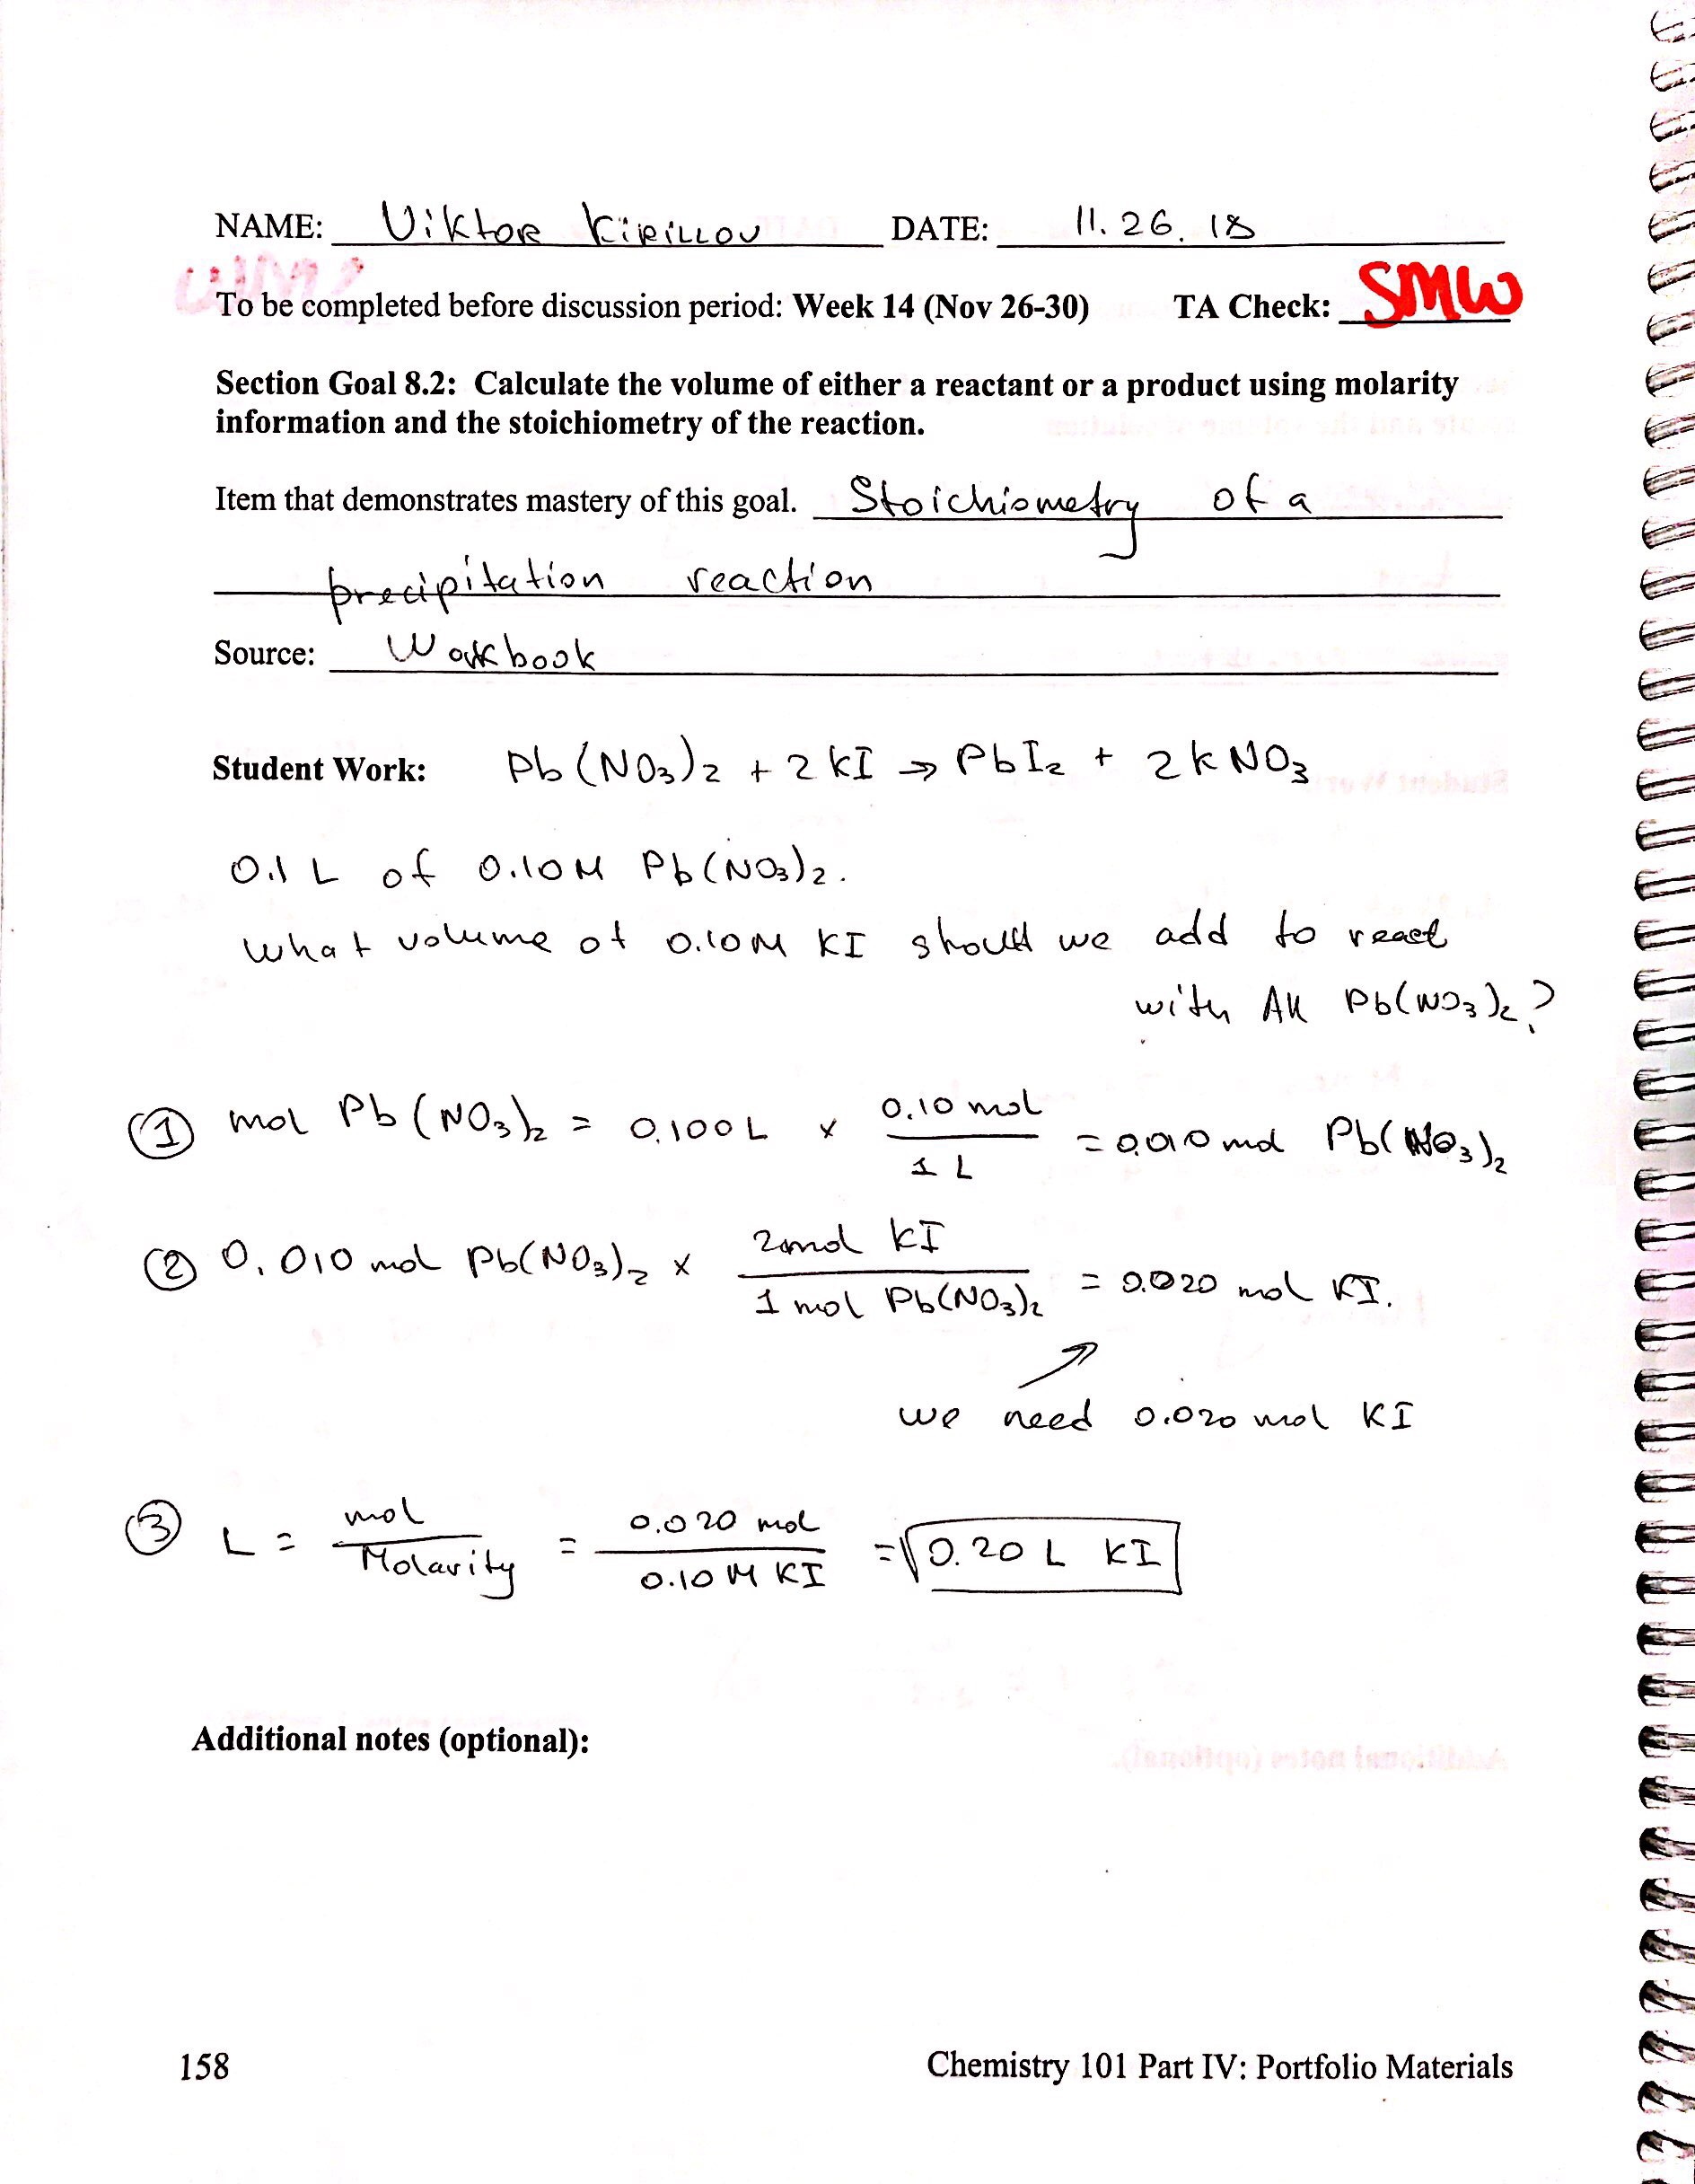 NAME: Viktor Kirillov DATE: 11.26.18
To be completed before discussion period: Week 14 (Nov 26-30) TA Check: SMW
Section Goal 8.2: Calculate the volume of either a reactant or a product using molarity
information and the stoichiometry of the reaction.
Item that demonstrates mastery of this goal. Stoichiometry of a
precipitation reaction
Source: Workbook
Student Work: Pb(NO₃)₂ + 2KI → PbI₂ + 2KNO₃
0.1 L of 0.10M Pb(NO₃)₂.
What volume of 0.10M KI should we add to react
with All Pb(NO₃)₂?
① mol Pb(NO₃)₂ = 0.100L × 0.10 mol / 1 L = 0.010 mol Pb(NO₃)₂
② 0.010 mol Pb(NO₃)₂ × 2 mol KI / 1 mol Pb(NO₃)₂ = 0.020 mol KI.
we need 0.020 mol KI
③ L = mol / Molarity = 0.020 mol / 0.10 M KI = 0.20 L KI
Additional notes (optional):
158 Chemistry 101 Part IV: Portfolio Materials